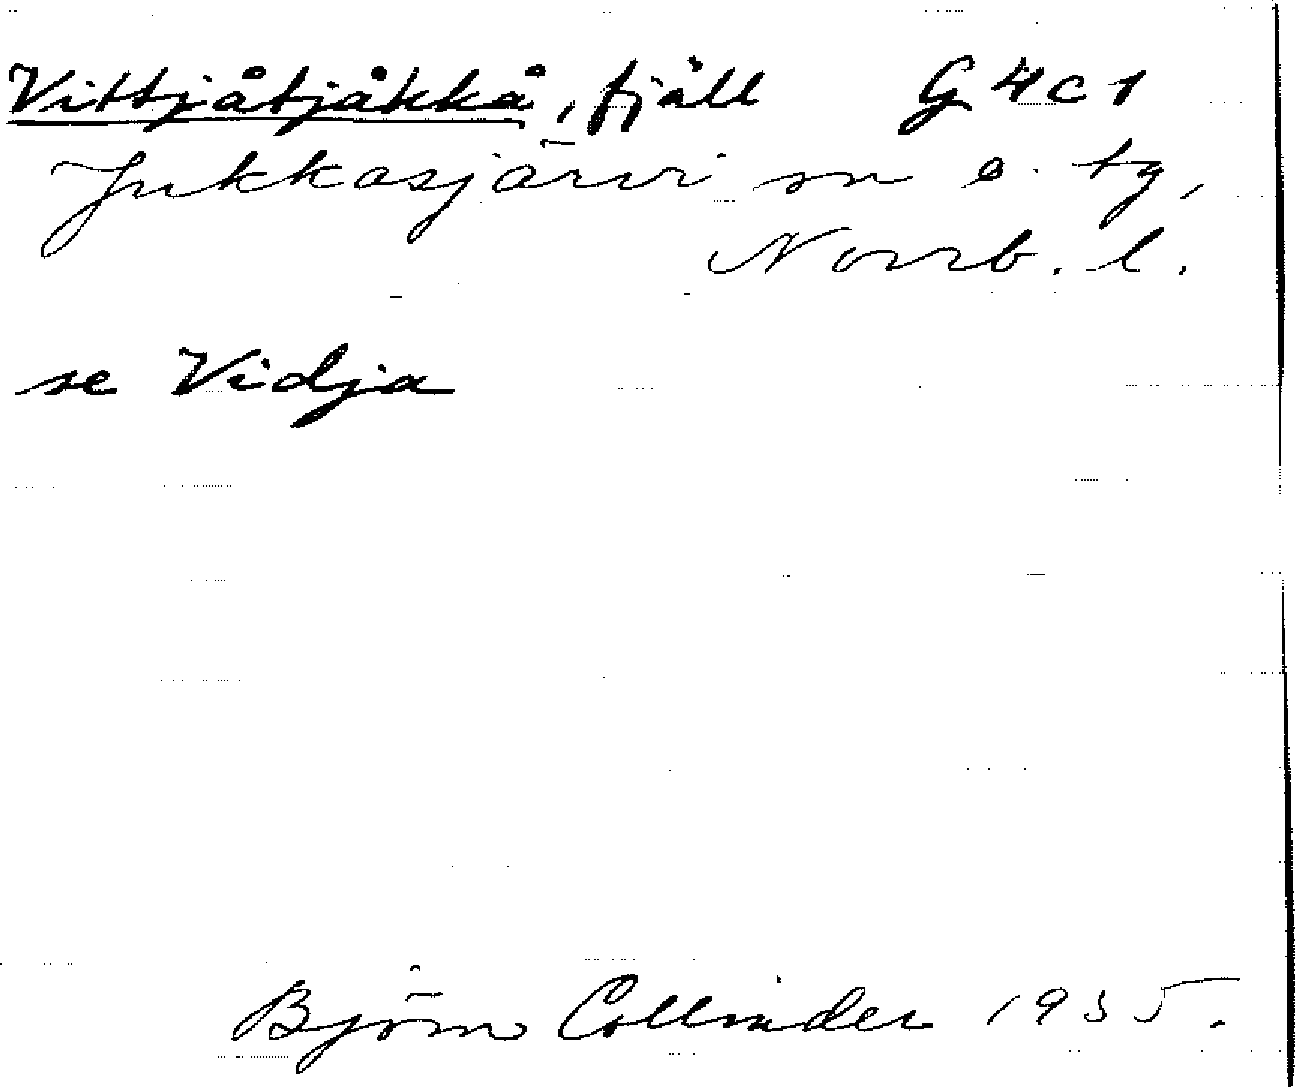 Vittjåtjåkkå, fjäll G 4 c 1
Jukkasjärvi sn o. tg,
Norrb. l.
se Vidja
Björn Collinder 1935.